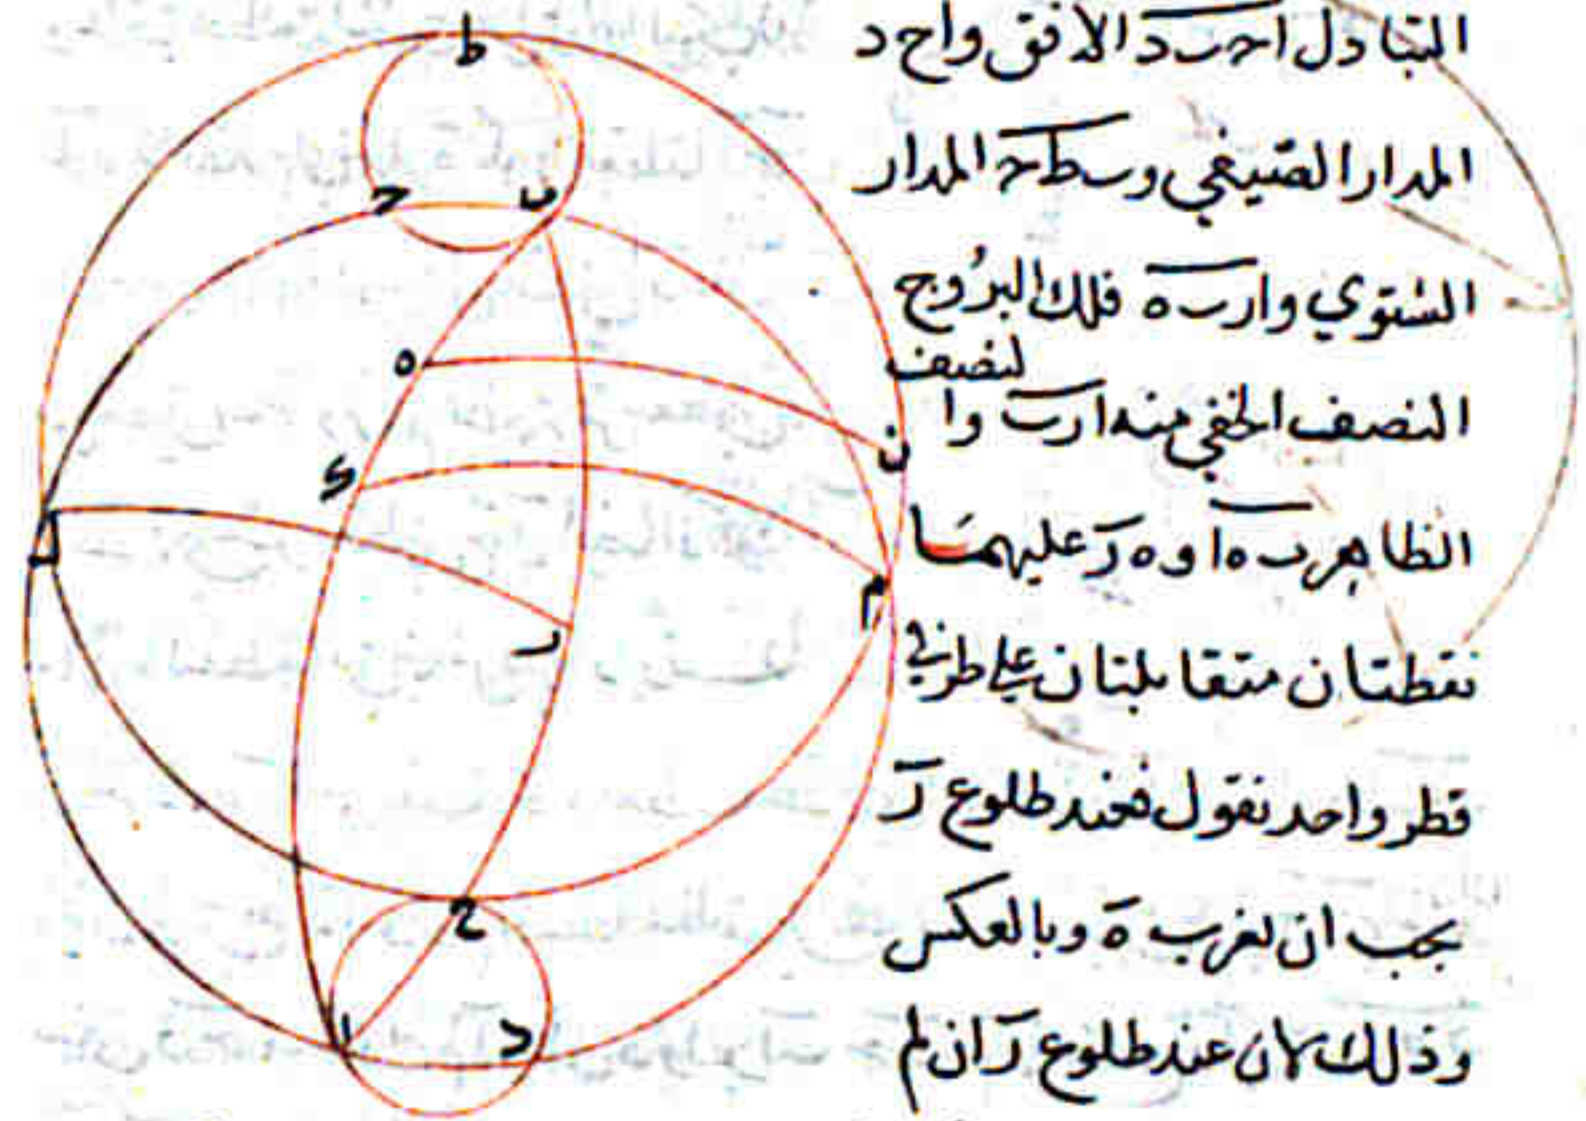 التبادل احب د الافق واح د
المدار الصيفي وب ط ح المدار
الشتوي وارب ه فلك البروج
لنصف
النصف الخفي منه ارب وا
الظاهر ب ه ا و ه ر عليهما
نقطتان متقابلتان على طرفي
قطر واحد نقول فعند طلوع ر
يجب ان تغرب ه وبالعكس
وذلك لان عند طلوع ر ان لم
ط
ح
ب
ه
ن
ى
ل
م
ر
ح
ا
د